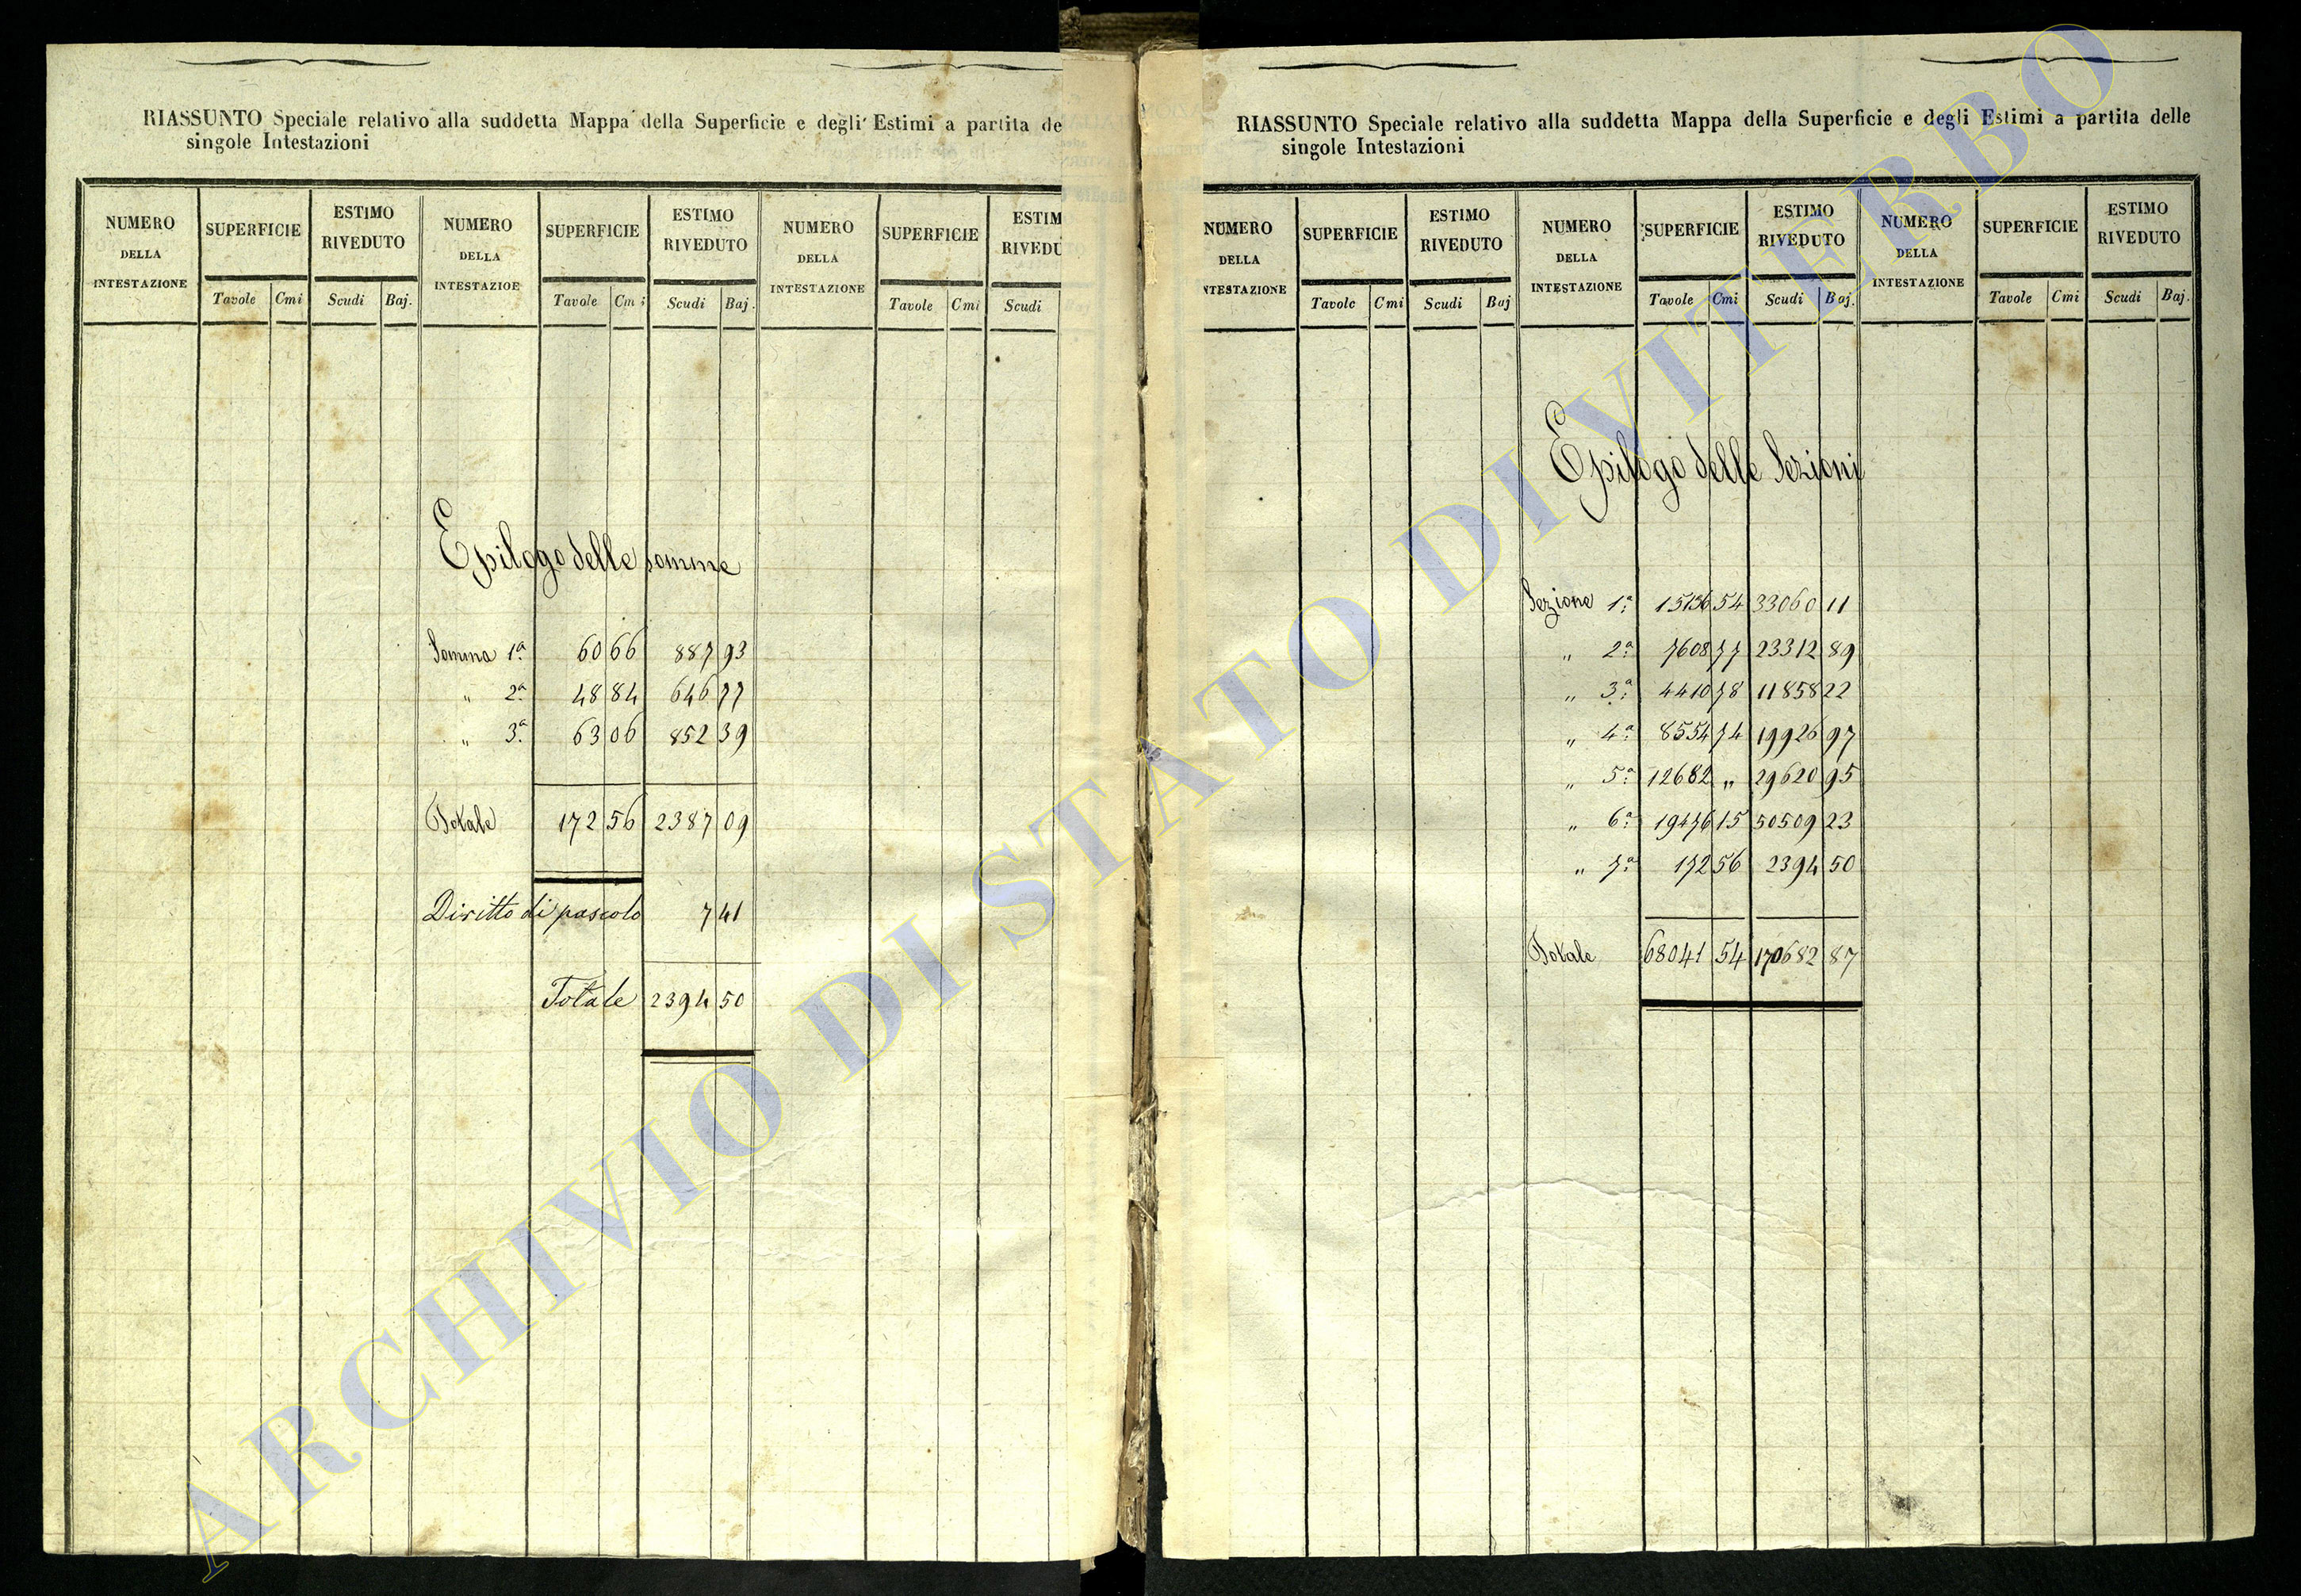 RIASSUNTO Speciale relativo alla suddetta Mappa della Superficie e degli Estimi a partita de
singole Intestazioni
NUMERO DELLA INTESTAZIONE SUPERFICIE ESTIMO RIVEDUTO NUMERO DELLA INTESTAZIOE SUPERFICIE ESTIMO RIVEDUTO NUMERO DELLA INTESTAZIONE SUPERFICIE ESTIM RIVEDU
Tavole Cmi Scudi Baj. Tavole Cmi Scudi Baj. Tavole Cmi Scudi
Epilogo delle somme
Somma 1ª 60 66 887 93
" 2ª 48 84 646 77
" 3ª 63 06 852 39
Totale 172 56 2387 09
Diritto di pascolo 7 41
Totale 2394 50
RIASSUNTO Speciale relativo alla suddetta Mappa della Superficie e degli Estimi a partita delle
singole Intestazioni
NUMERO DELLA NTESTAZIONE SUPERFICIE ESTIMO RIVEDUTO NUMERO DELLA INTESTAZIONE SUPERFICIE ESTIMO RIVEDUTO NUMERO DELLA INTESTAZIONE SUPERFICIE ESTIMO RIVEDUTO
Tavole Cmi Scudi Baj Tavole Cmi Scudi Baj. Tavole Cmi Scudi Baj.
Epilogo delle Sezioni
Sezione 1ª 15136 54 33060 11
" 2ª 7608 77 23312 89
" 3ª 4410 78 11858 22
" 4ª 8554 74 19926 97
" 5ª 12682 " 29620 95
" 6ª 19476 15 50509 23
" 7ª 172 56 2394 50
Totale 68041 54 170682 87
ARCHIVIO DI STATO DI VITERBO